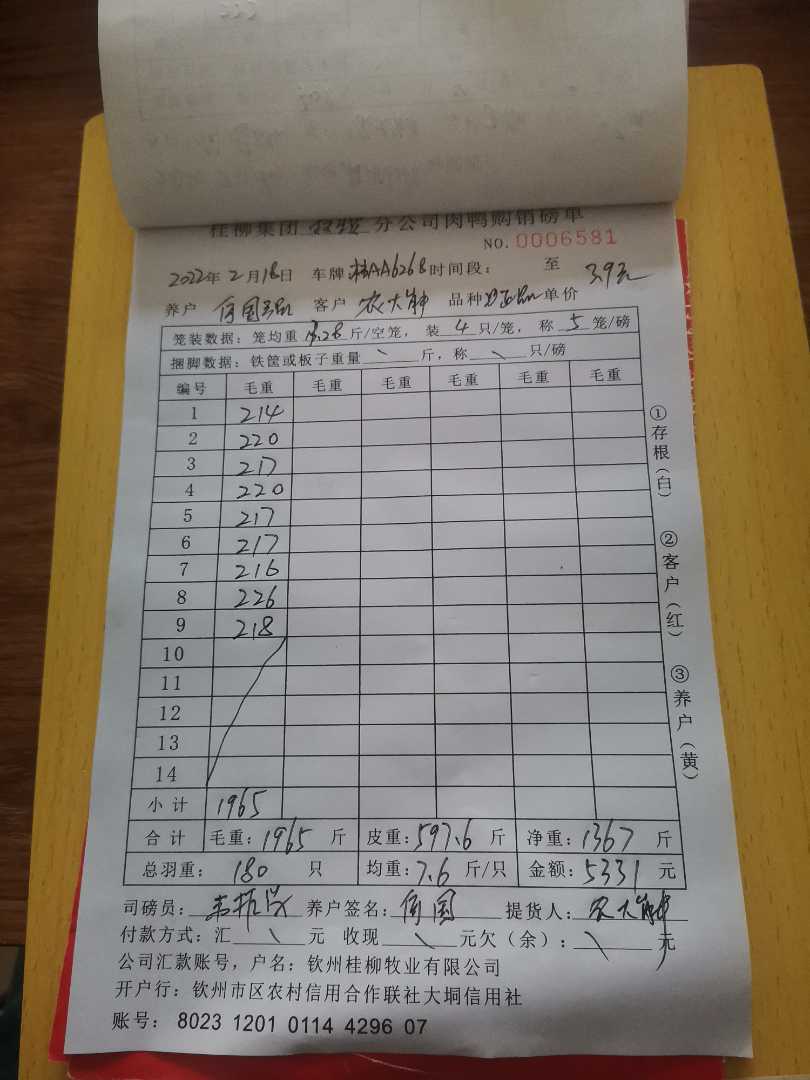 桂柳集团 分公司肉鸭购销磅单
NO.0006581
2022年2月18日 车牌 桂AA6268 时间段： 至
养户 何国 客户 农大静 品种 单价 3.9元
笼装数据：笼均重 13.28 斤/空笼，装 4 只/笼，称 5 笼/磅
捆脚数据：铁筐或板子重量 \ 斤，称 \ 只/磅
编号 毛重 毛重 毛重 毛重 毛重 毛重
1 214
2 220
3 217
4 220
5 217
6 217
7 216
8 226
9 218
10
11
12
13
14
小计 1965
合计 毛重：1965 斤 皮重：597.6 斤 净重：1367 斤
总羽重： 180 只 均重：7.6 斤/只 金额：5331 元
司磅员： 养户签名：何国 提货人：农大静
付款方式：汇 \ 元 收现 \ 元欠（余）： \ 元
公司汇款账号，户名：钦州桂柳牧业有限公司
开户行：钦州市区农村信用合作联社大垌信用社
账号： 8023 1201 0114 4296 07
①存根（白）
②客户（红）
③养户（黄）